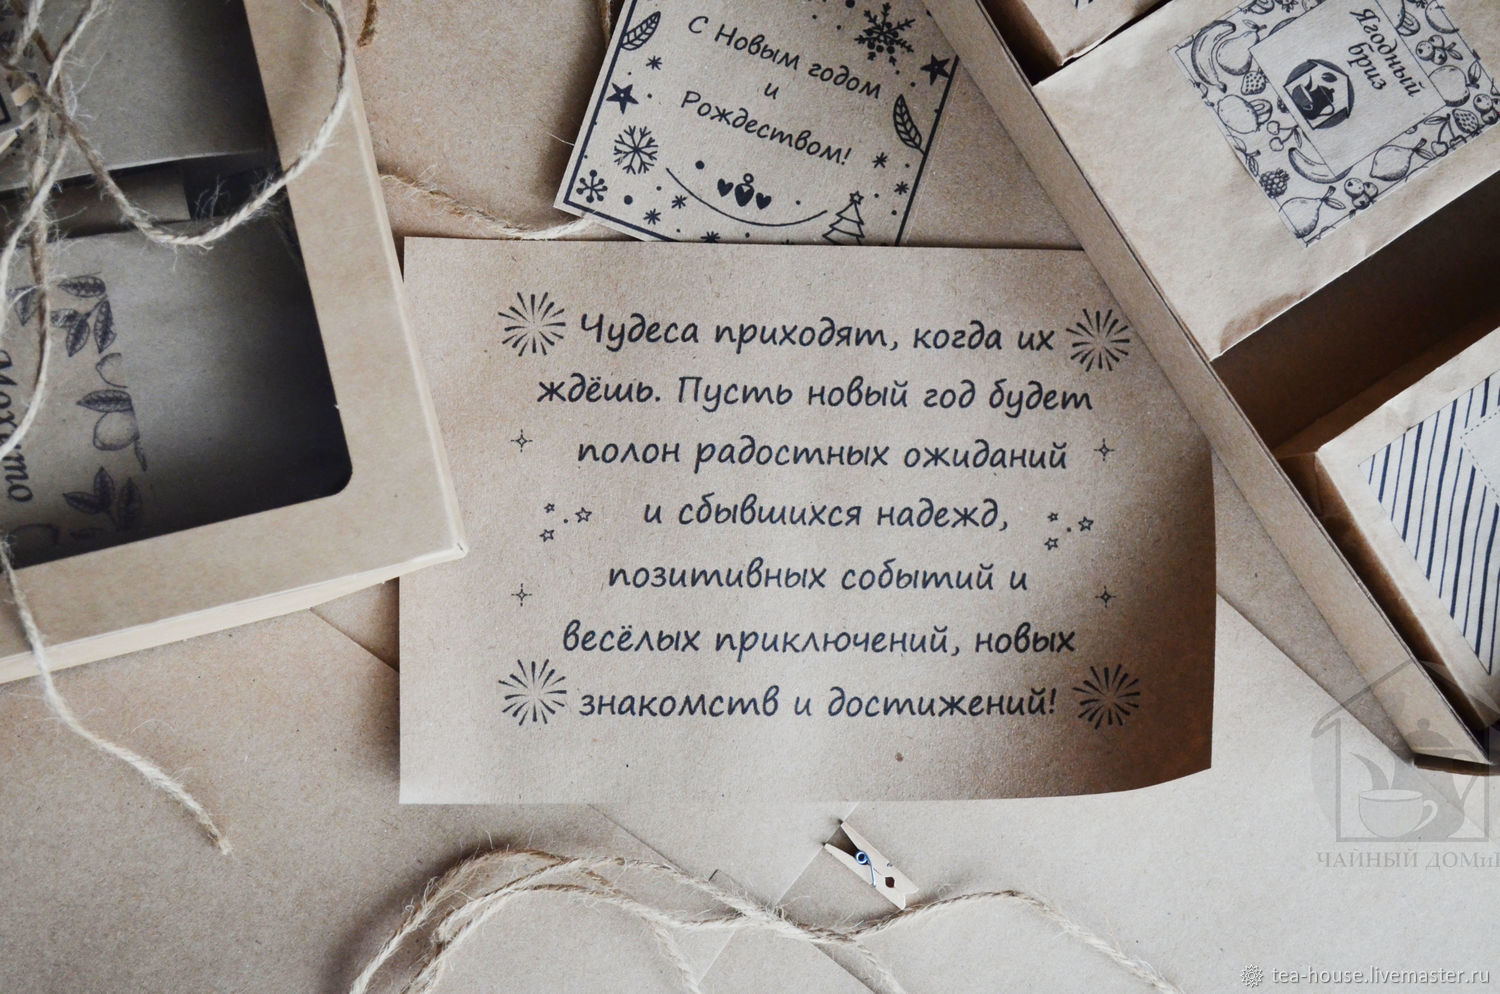 С Новым годом
и
Рождеством!
Ягодный
бриз
Чудеса приходят, когда их
ждёшь. Пусть новый год будет
полон радостных ожиданий
и сбывшихся надежд,
позитивных событий и
весёлых приключений, новых
знакомств и достижений!
ЧАЙНЫЙ
tea-house.livemaster.ru